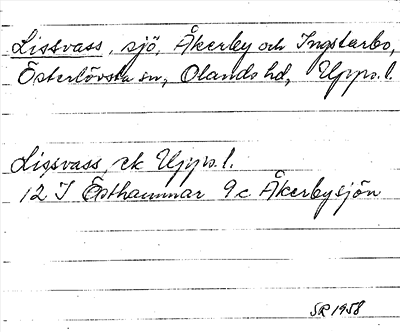 Lissvass, sjö, Åkerby och Ingstarbo,
Österlövsta sn, Olands hd, Upps. l.
Lissvass, ek Upps. l.
12 I Östhammar 9c Åkerbysjön
SR 1958